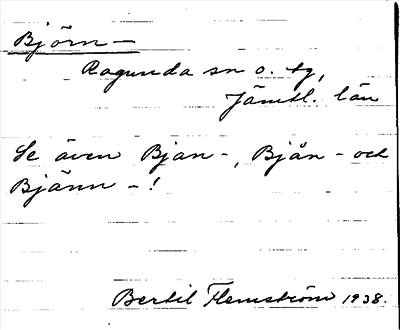 Björn-
Ragunda sn o. tg,
Jämtl. län
Se även Bjan-, Bjån- och
Bjänn-!
Bertil Flemström 1938.